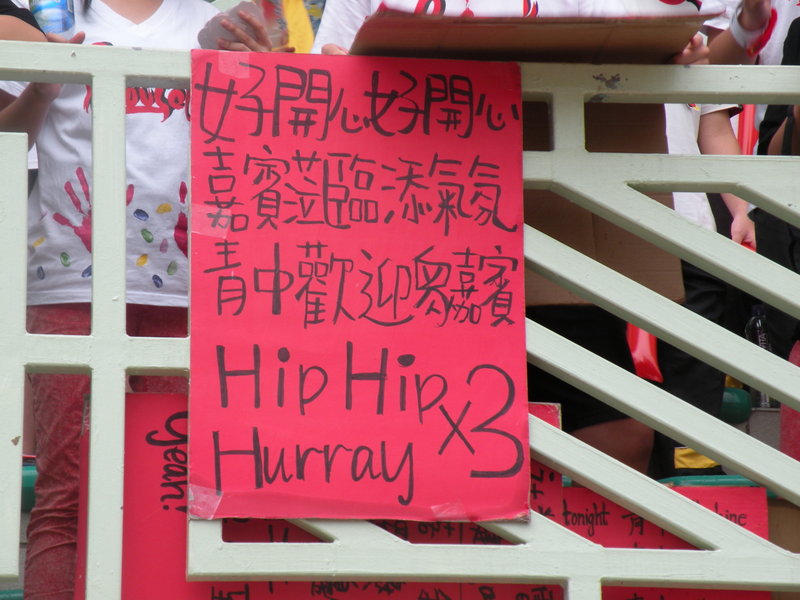 好開心好開心
嘉賓蒞臨添氣氛
青中歡迎眾嘉賓
Hip Hip
Hurray x3
Yeah!
tonight